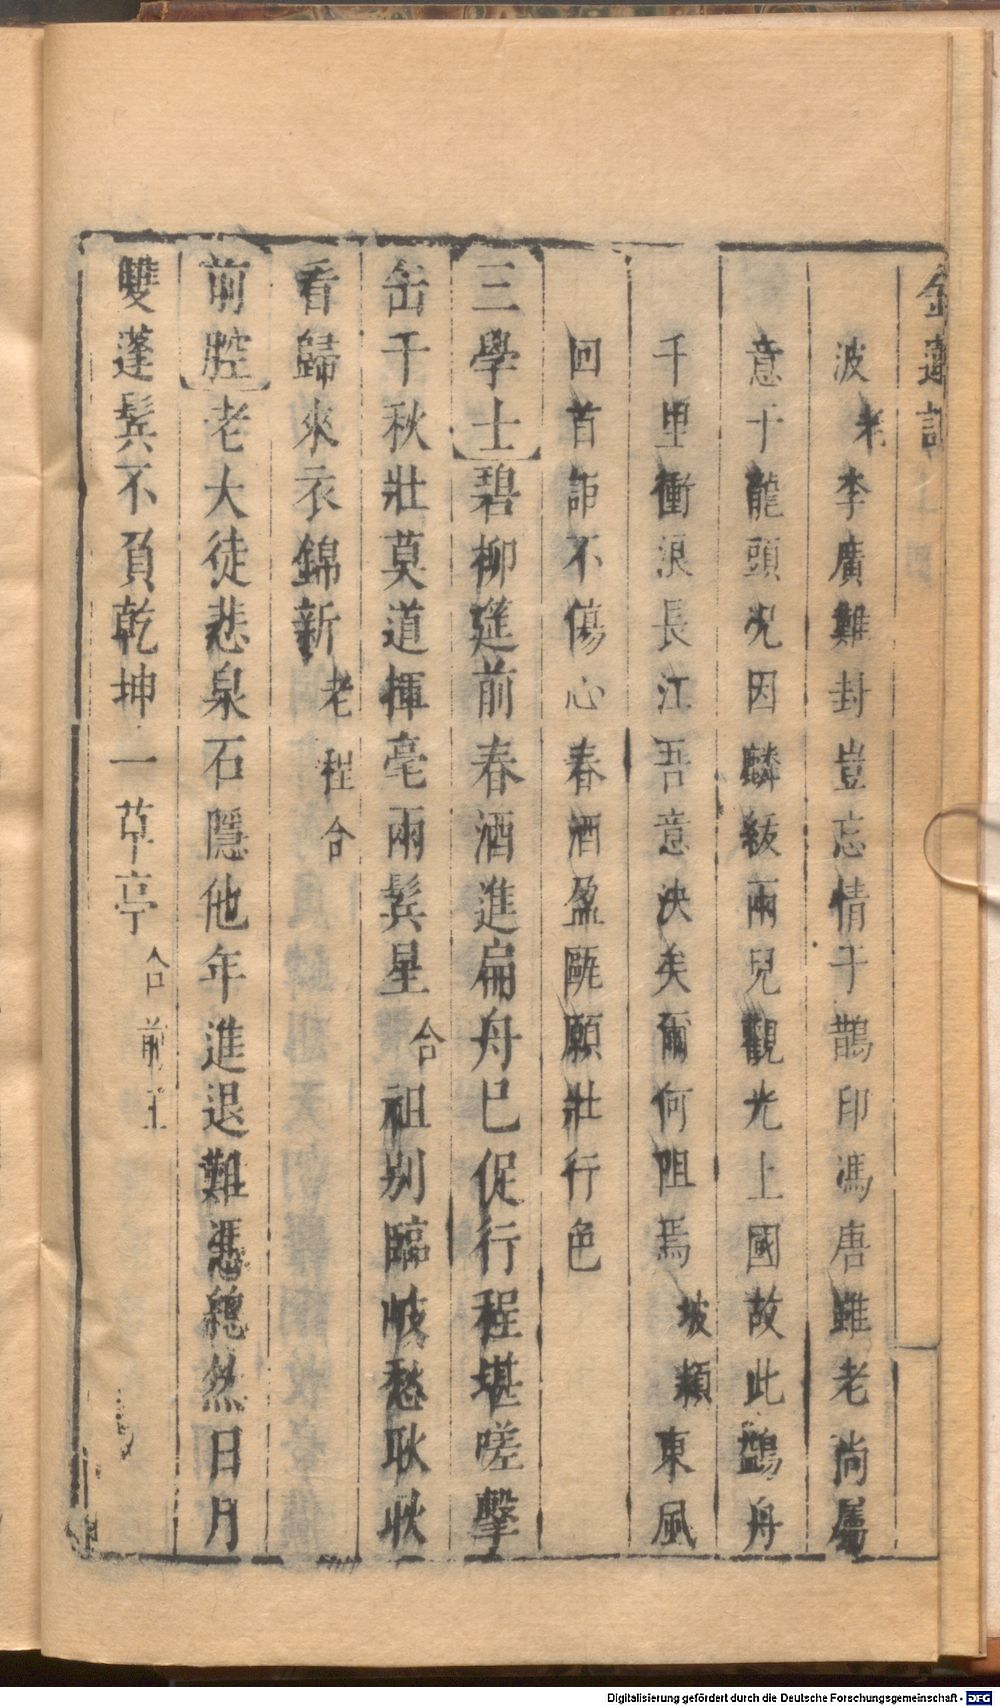 金蓮記
波老李廣難封豈忘情于鵲印馮唐雖老尚屬
意于龍頭况因麟紱兩兒觀光上國故此鷁舟
千里衝浪長江吾意決矣爾何阻焉坡頼東風
回首詎不傷心春酒盈甌願壯行色
三學士碧柳筵前春酒進扁舟已促行程堪嗟擊
缶干秋壯莫道揮毫兩鬂星合祖别臨岐愁耿耿
看歸來衣錦新老程合
前腔老大徒悲泉石隱他年進退難憑總然日月
雙蓬鬂不負乾坤一草亭合前
Digitalisierung gefördert durch die Deutsche Forschungsgemeinschaft - DFG